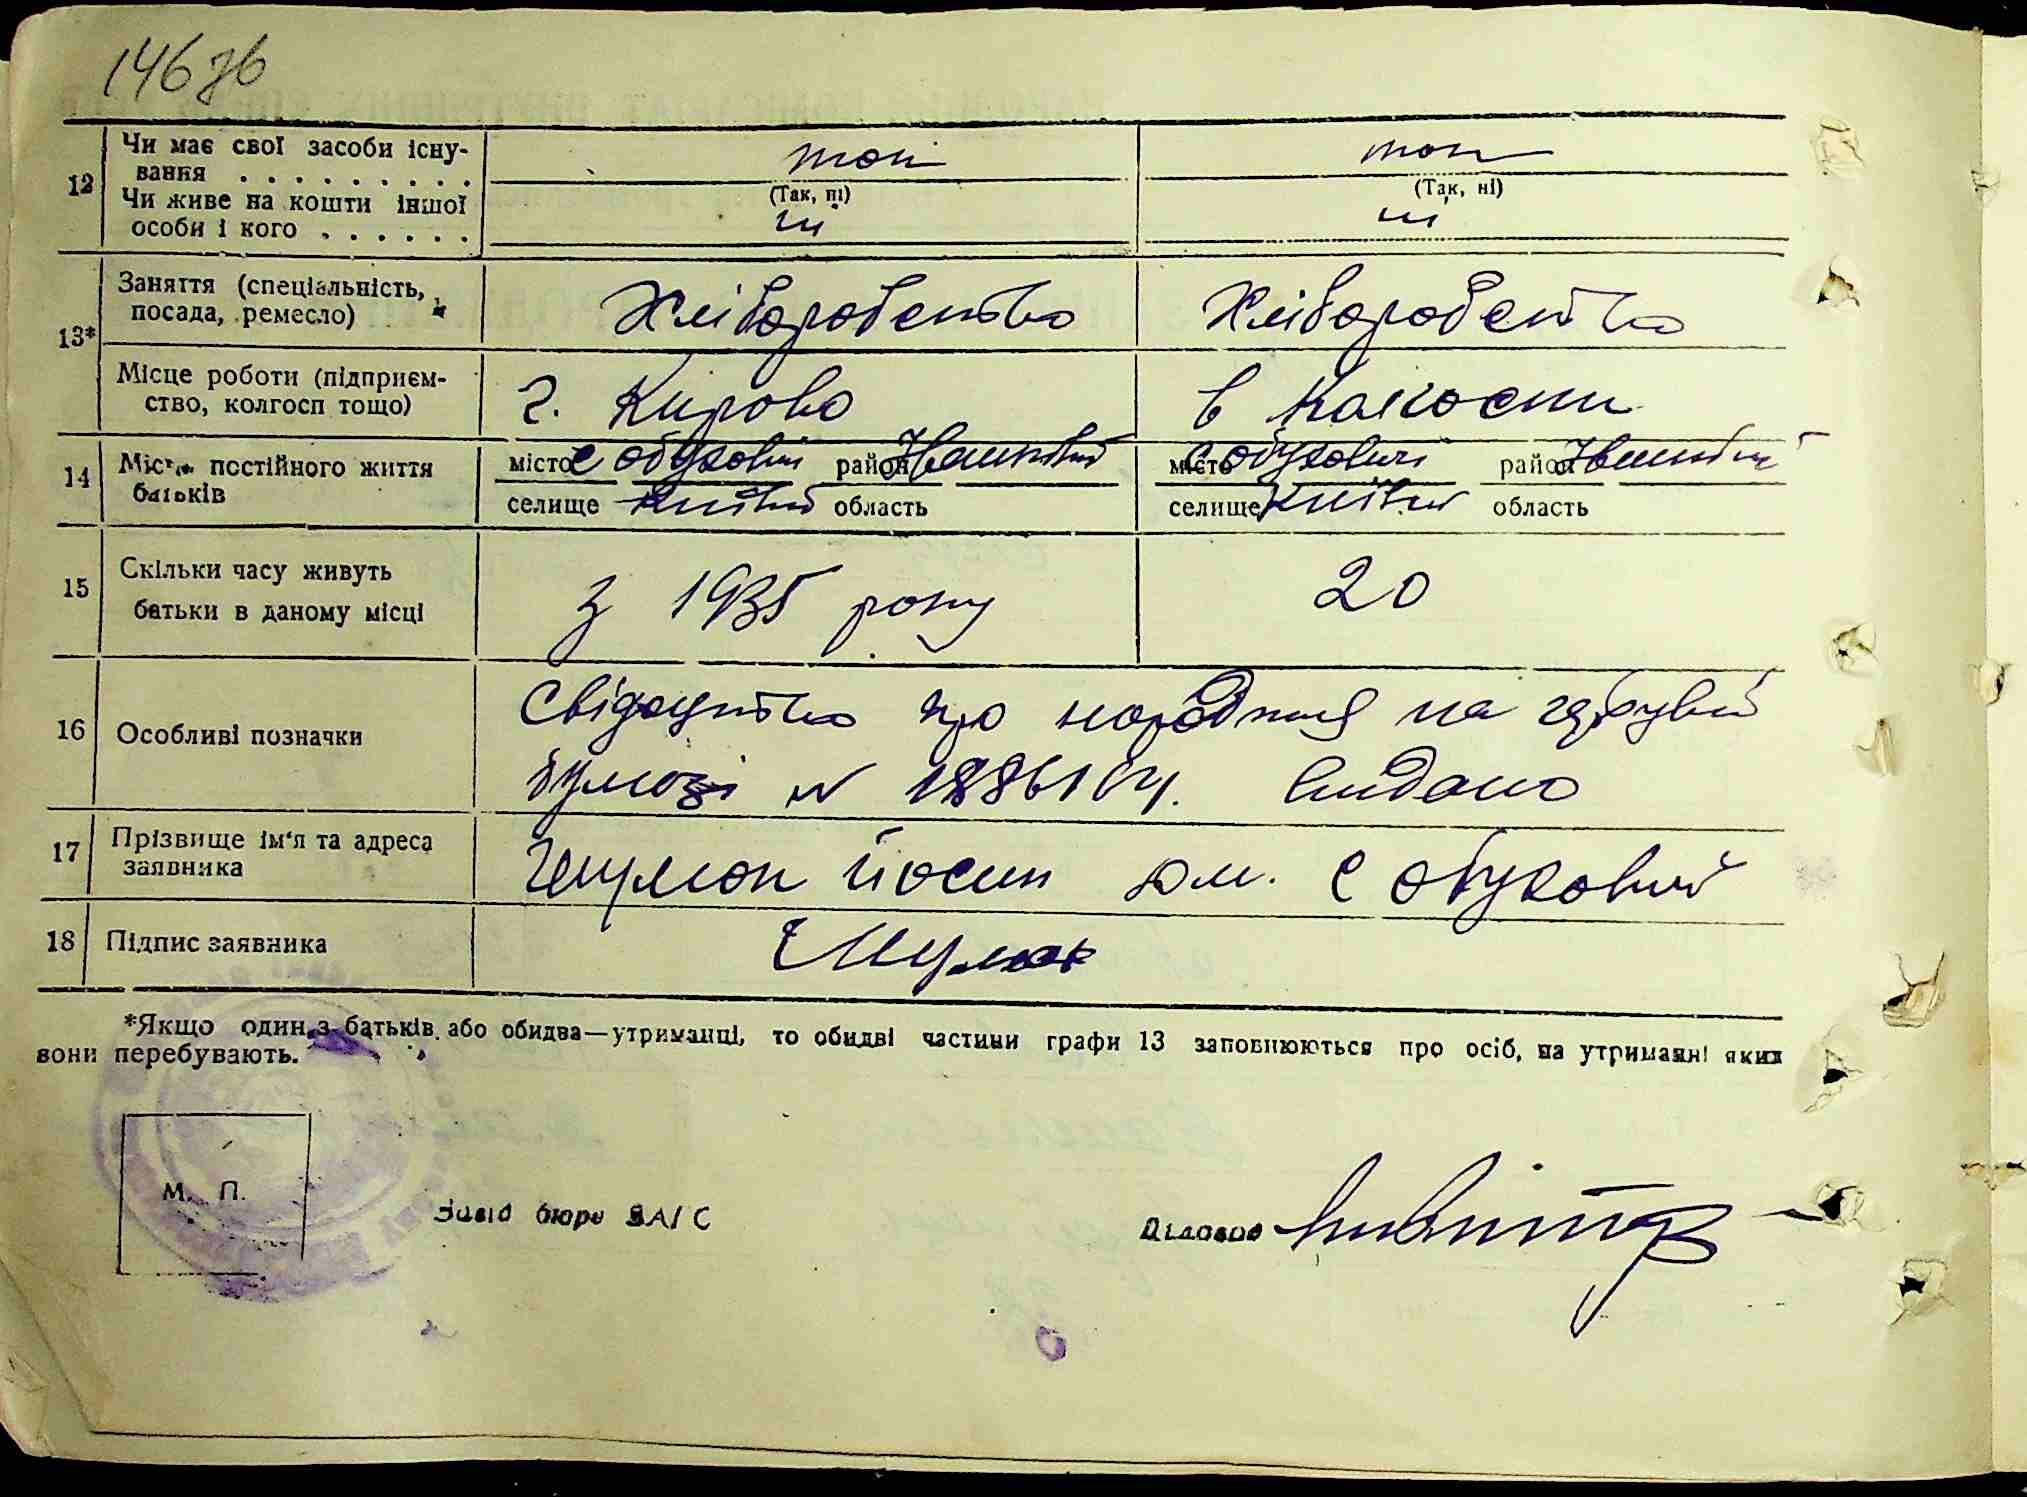 146 зв
12 Чи має свої засоби існу-
вання . . . . . . . . . так так
(Так, ні) (Так, ні)
Чи живе на кошти іншої
особи і кого . . . . . . ні ні
13* Заняття (спеціальність,
посада, ремесло) Хліборобство Хліборобство
Місце роботи (підприєм-
ство, колгосп тощо) Кірово в колгоспи
14 постійного життя місто с Обуховичі район Іванківський місто с Обуховичі район Іванківський
батьків селище Київській область селище Київській область
15 Скільки часу живуть
батьки в даному місці з 1935 року 20
16 Особливі позначки Свідоцтво про народжиня на
N видано
17 Прізвище ім'я та адреса
заявника йосип с Обуховичі
18 Підпис заявника
*Якщо один з батьків або обидва—утриманці, то обидві частини графи 13 заповнюються про осіб, на утриманні яких
вони перебувають.
М. П.
Завід бюро ЗАГС Діловод